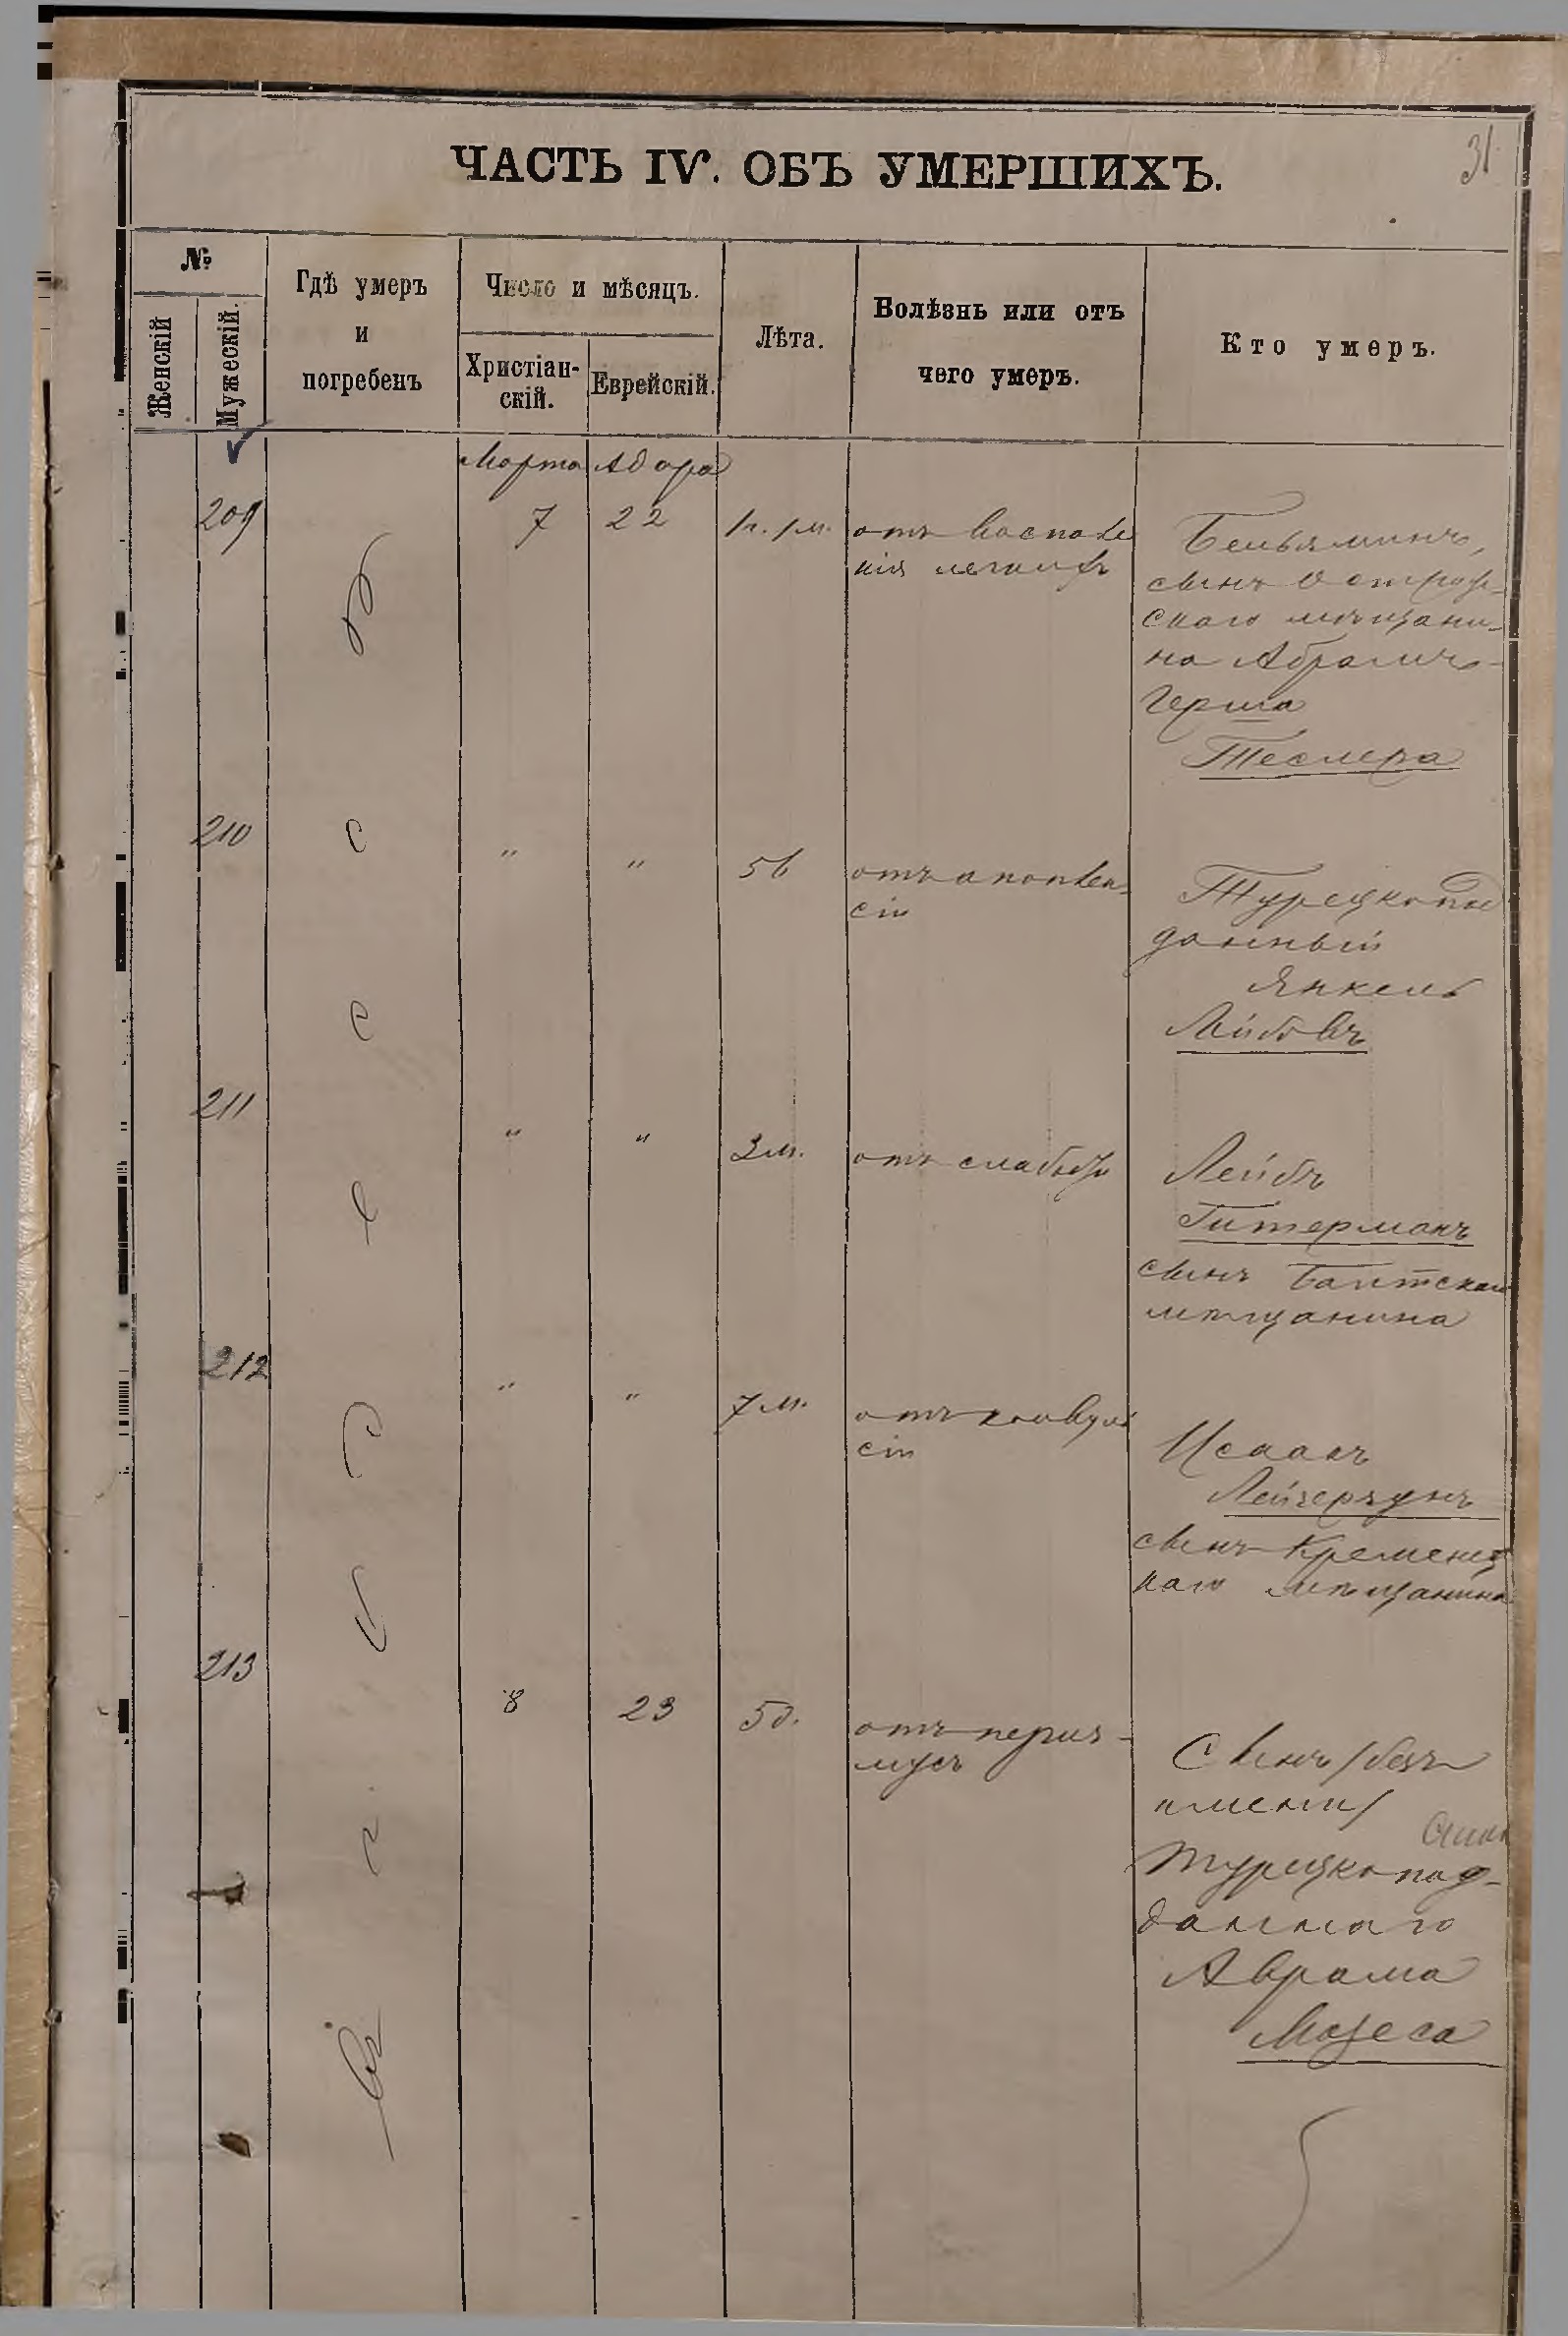 31
ЧАСТЬ IV. ОБЪ УМЕРШИХЪ.
№
Женскій
Мужескій.
Гдѣ умеръ
и
погребенъ
Число и мѣсяцъ.
Христіан-
скій.
Еврейскій.
Лѣта.
Болѣзнь или отъ
чего умеръ.
Кто умеръ.
Марта Адара
209 7 22 1г. 1м. отъ воспале
нія легкихъ
Беньяминъ,
сынъ Острож-
скаго мѣщани-
на Абрамъ-
Герша
Теслера
210 " " 56 отъ апоплек-
сіи
Турецкопод
данный
Янкель
Лейбовъ
211 " " 3м. отъ слабости
Лейбъ
Гитерманъ
сынъ Балтскаго
мѣщанина
212 " " 7м. отъ конвуль
сіи
Исаакъ
Лейзерзунъ
сынъ Кременец
каго мѣщанина
213 8 23 5д. отъ тризъ-
мусъ
Сынъ (безъ
имени)
Турецкопод-
даннаго
Аврама
Мозеса
Одессѣ